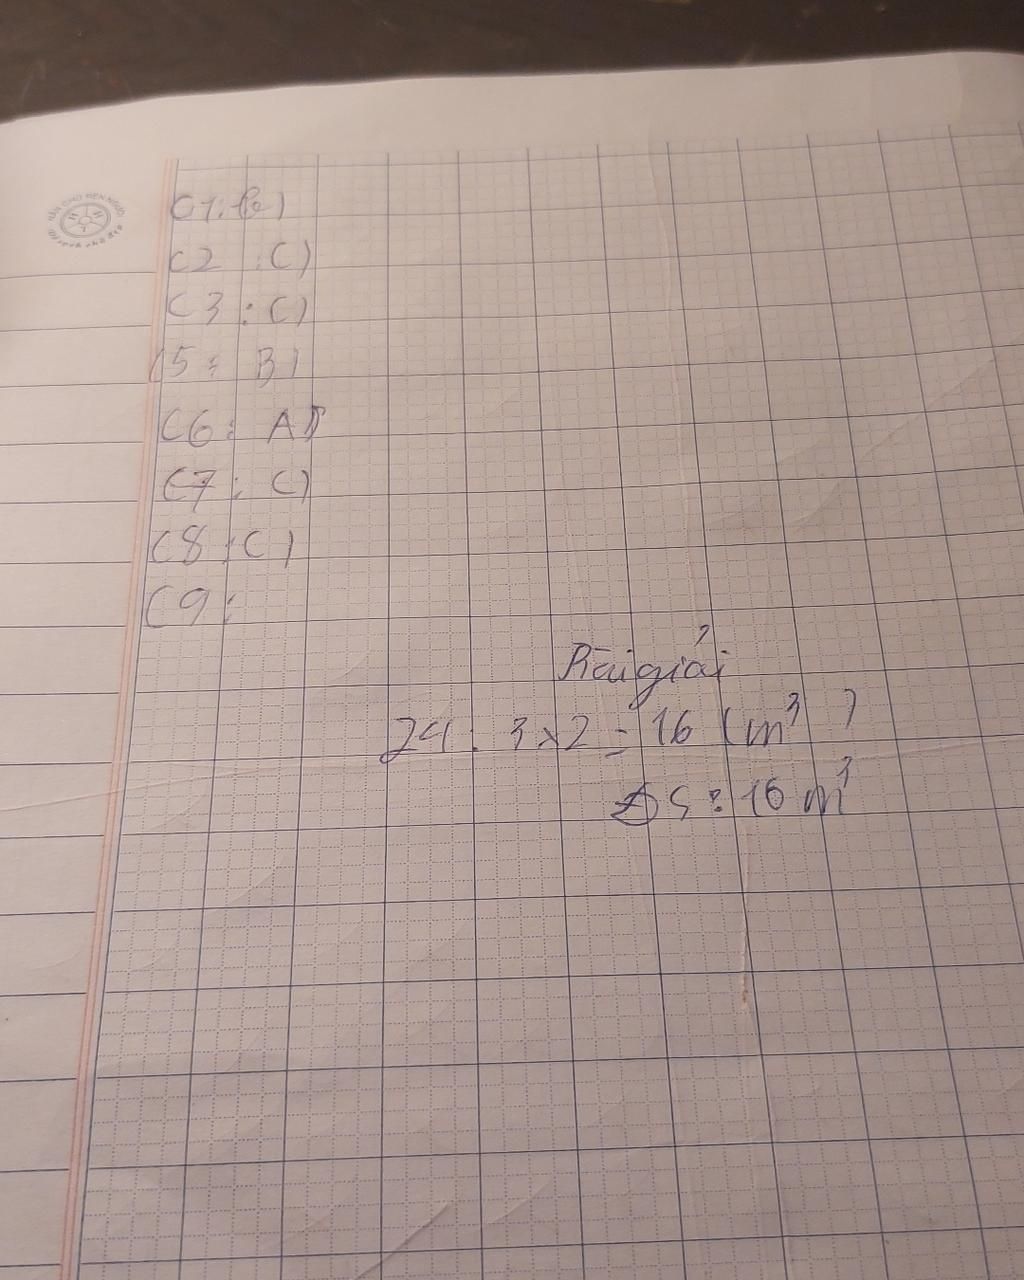 C1: b)
C2 : C)
C3 : C)
C5 : B)
C6 : A)
C7 : C)
C8 : C)
C9 :
Bài giải
24 : 3 x 2 = 16 (m³)
ĐS : 16 m³